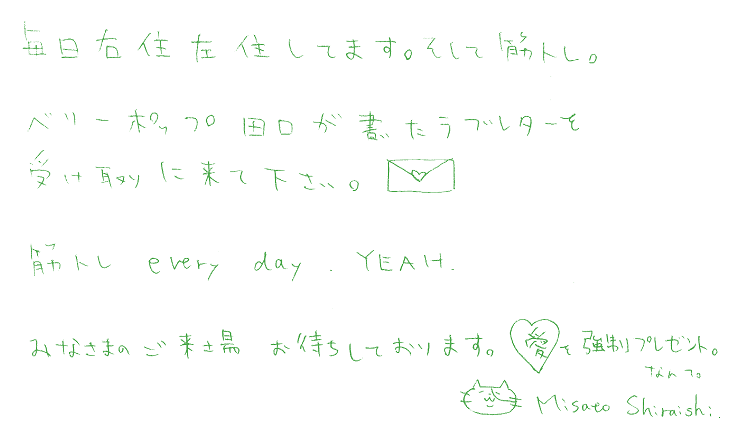 毎日右往左往してます。そして筋トレ。
ベリーポップ田口が書いたラブレターを
受け取りに来て下さい。
筋トレ every day. YEAH.
みなさまのご来場お待ちしております。愛を強制プレゼント。
なんて。
Misato Shiraishi.